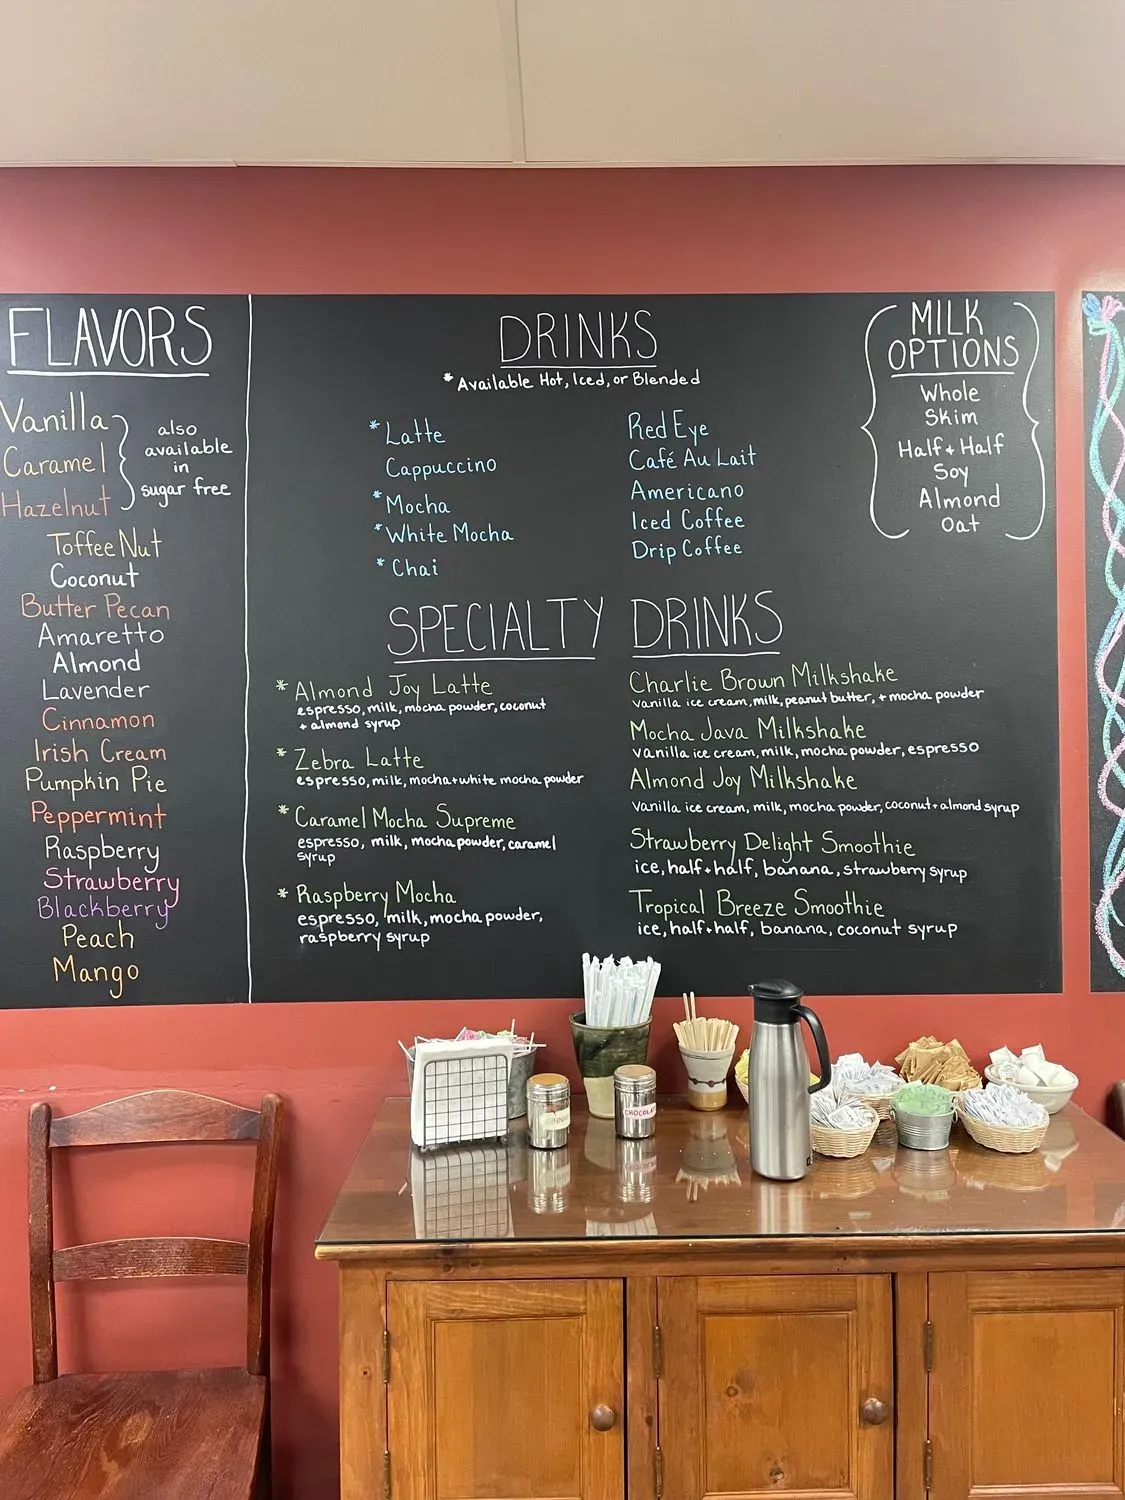 FLAVORS
Vanilla
Caramel
Hazelnut
also
available
in
sugar free
Toffee Nut
Coconut
Butter Pecan
Amaretto
Almond
Lavender
Cinnamon
Irish Cream
Pumpkin Pie
Peppermint
Raspberry
Strawberry
Blackberry
Peach
Mango
DRINKS
*Available Hot, Iced, or Blended
*Latte
Cappuccino
*Mocha
*White Mocha
*Chai
Red Eye
Café Au Lait
Americano
Iced Coffee
Drip Coffee
MILK
OPTIONS
Whole
Skim
Half + Half
Soy
Almond
Oat
SPECIALTY DRINKS
* Almond Joy Latte
espresso, milk, mocha powder, coconut
+ almond syrup
* Zebra Latte
espresso, milk, mocha + white mocha powder
* Caramel Mocha Supreme
espresso, milk, mocha powder, caramel
syrup
* Raspberry Mocha
espresso, milk, mocha powder,
raspberry syrup
Charlie Brown Milkshake
vanilla ice cream, milk, peanut butter, + mocha powder
Mocha Java Milkshake
vanilla ice cream, milk, mocha powder, espresso
Almond Joy Milkshake
vanilla ice cream, milk, mocha powder, coconut + almond syrup
Strawberry Delight Smoothie
ice, half + half, banana, strawberry syrup
Tropical Breeze Smoothie
ice, half + half, banana, coconut syrup